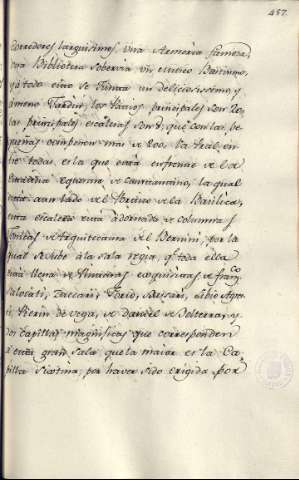 457.
Corredores larguisimos, una Armeria famosa,
una Biblioteca sobervia un Museo
y à todo esto se Junta un deliciosissimo, y
ameno Jardin; los Patios principales son 20,
las principales escaleras son 8, que con las pe-
queñas componen mas de 200. La Real en-
tre todas es la que està enfrente de la
estatua equestre de Constantino, la qual
està a un lado del Portico de la Basilica;
esta escalera està adornada de columnas
de Arquitectura del Bernini, por la
qual se sube à la sala regia, q.e toda ella
està llena de Pinturas exquisitas de Fran.co
Salviati, Zuccari, Vasari,
Pierin de vaga, de Daniel de Volterra, y
dos Capillas magnificas que corresponden
à esta gran sala, que la maior es la Ca-
pilla Sixtina, por haver sido erigida por